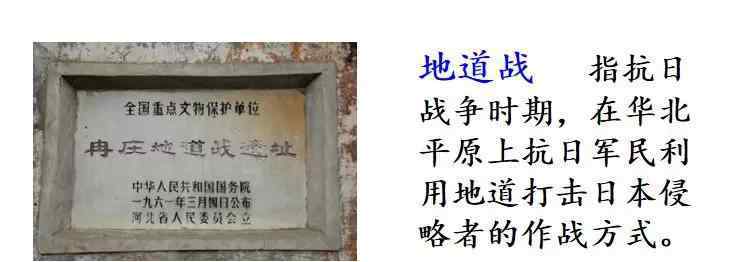 全国重点文物保护单位
冉庄地道战遗址
中华人民共和国国务院
一九六一年三月四日公布
河北省人民委员会立
地道战 指抗日
战争时期，在华北
平原上抗日军民利
用地道打击日本侵
略者的作战方式。